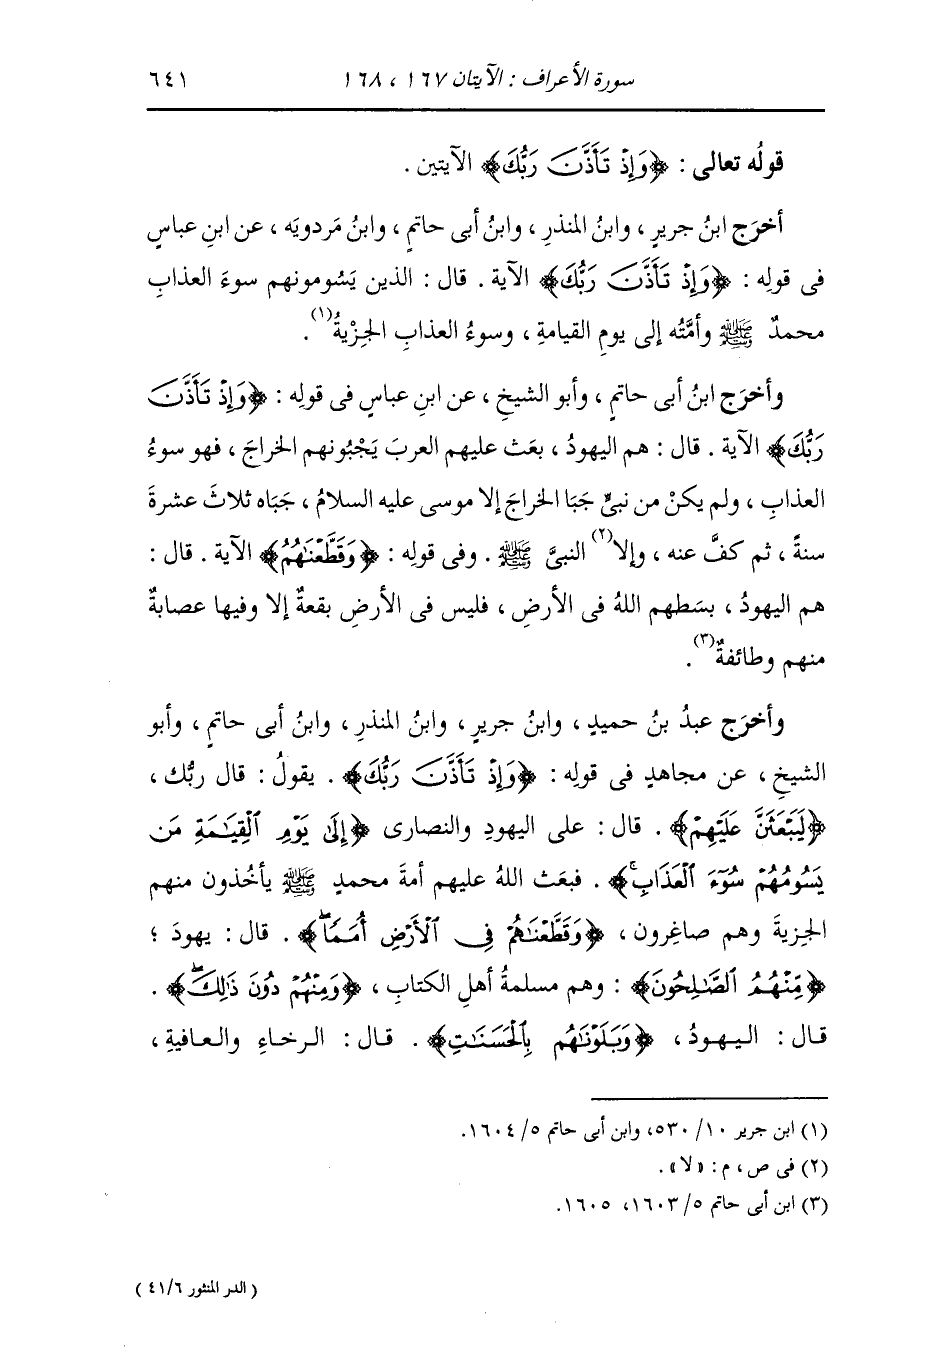 سورة الأعراف : الآيتان ١٦٧ ، ١٦٨ ٦٤١
قولُه تعالى : ﴿وَإِذْ تَأَذَّنَ رَبُّكَ﴾ الآيتين .
أخرَج ابنُ جريرٍ ، وابنُ المنذرِ ، وابنُ أبى حاتمٍ ، وابنُ مَردويَه ، عن ابنِ عباسٍ
فى قولِه : ﴿وَإِذْ تَأَذَّنَ رَبُّكَ﴾ الآية . قال : الذين يَسُومونهم سوءَ العذابِ
محمدٌ ﷺ وأمَّتُه إلى يومِ القيامةِ ، وسوءُ العذابِ الجِزْيةُ(١) .
وأخرَج ابنُ أبى حاتمٍ ، وأبو الشيخِ ، عن ابنِ عباسٍ فى قولِه : ﴿وَإِذْ تَأَذَّنَ
رَبُّكَ﴾ الآية . قال : هم اليهودُ ، بعَث عليهم العربَ يَجْبُونهم الخراجَ ، فهو سوءُ
العذابِ ، ولم يكنْ من نبىٍّ جَبَا الخراجَ إلا موسى عليه السلامُ ، جَبَاه ثلاثَ عشرةَ
سنةً ، ثم كفَّ عنه ، وإلا(٢) النبىَّ ﷺ . وفى قولِه : ﴿وَقَطَّعْنَٰهُمْ﴾ الآية . قال :
هم اليهودُ ، بسَطهم اللهُ فى الأرضِ ، فليس فى الأرضِ بقعةٌ إلا وفيها عصابةٌ
منهم وطائفةٌ(٣) .
وأخرَج عبدُ بنُ حميدٍ ، وابنُ جريرٍ ، وابنُ المنذرِ ، وابنُ أبى حاتمٍ ، وأبو
الشيخِ ، عن مجاهدٍ فى قولِه : ﴿وَإِذْ تَأَذَّنَ رَبُّكَ﴾ . يقولُ : قال ربُّك ،
﴿لَيَبْعَثَنَّ عَلَيْهِمْ﴾ . قال : على اليهودِ والنصارى ﴿إِلَىٰ يَوْمِ ٱلْقِيَٰمَةِ مَن
يَسُومُهُمْ سُوٓءَ ٱلْعَذَابِۗ﴾ . فبعَث اللهُ عليهم أمةَ محمدٍ ﷺ يأخُذون منهم
الجزيةَ وهم صاغِرون ، ﴿وَقَطَّعْنَٰهُمْ فِى ٱلْأَرْضِ أُمَمًاۖ﴾ . قال : يهودَ ؛
﴿مِّنْهُمُ ٱلصَّٰلِحُونَ﴾ : وهم مسلمةُ أهلِ الكتابِ ، ﴿وَمِنْهُمْ دُونَ ذَٰلِكَۖ﴾ .
قال : اليهودُ ، ﴿وَبَلَوْنَٰهُم بِٱلْحَسَنَٰتِ﴾ . قال : الرخاءِ والعافيةِ ،
(١) ابن جرير ١٠/ ٥٣٠، وابن أبى حاتم ٥/ ١٦٠٤.
(٢) فى ص ، م : «لا» .
(٣) ابن أبى حاتم ٥/ ١٦٠٣، ١٦٠٥.
( الدر المنثور ٤١/٦ )